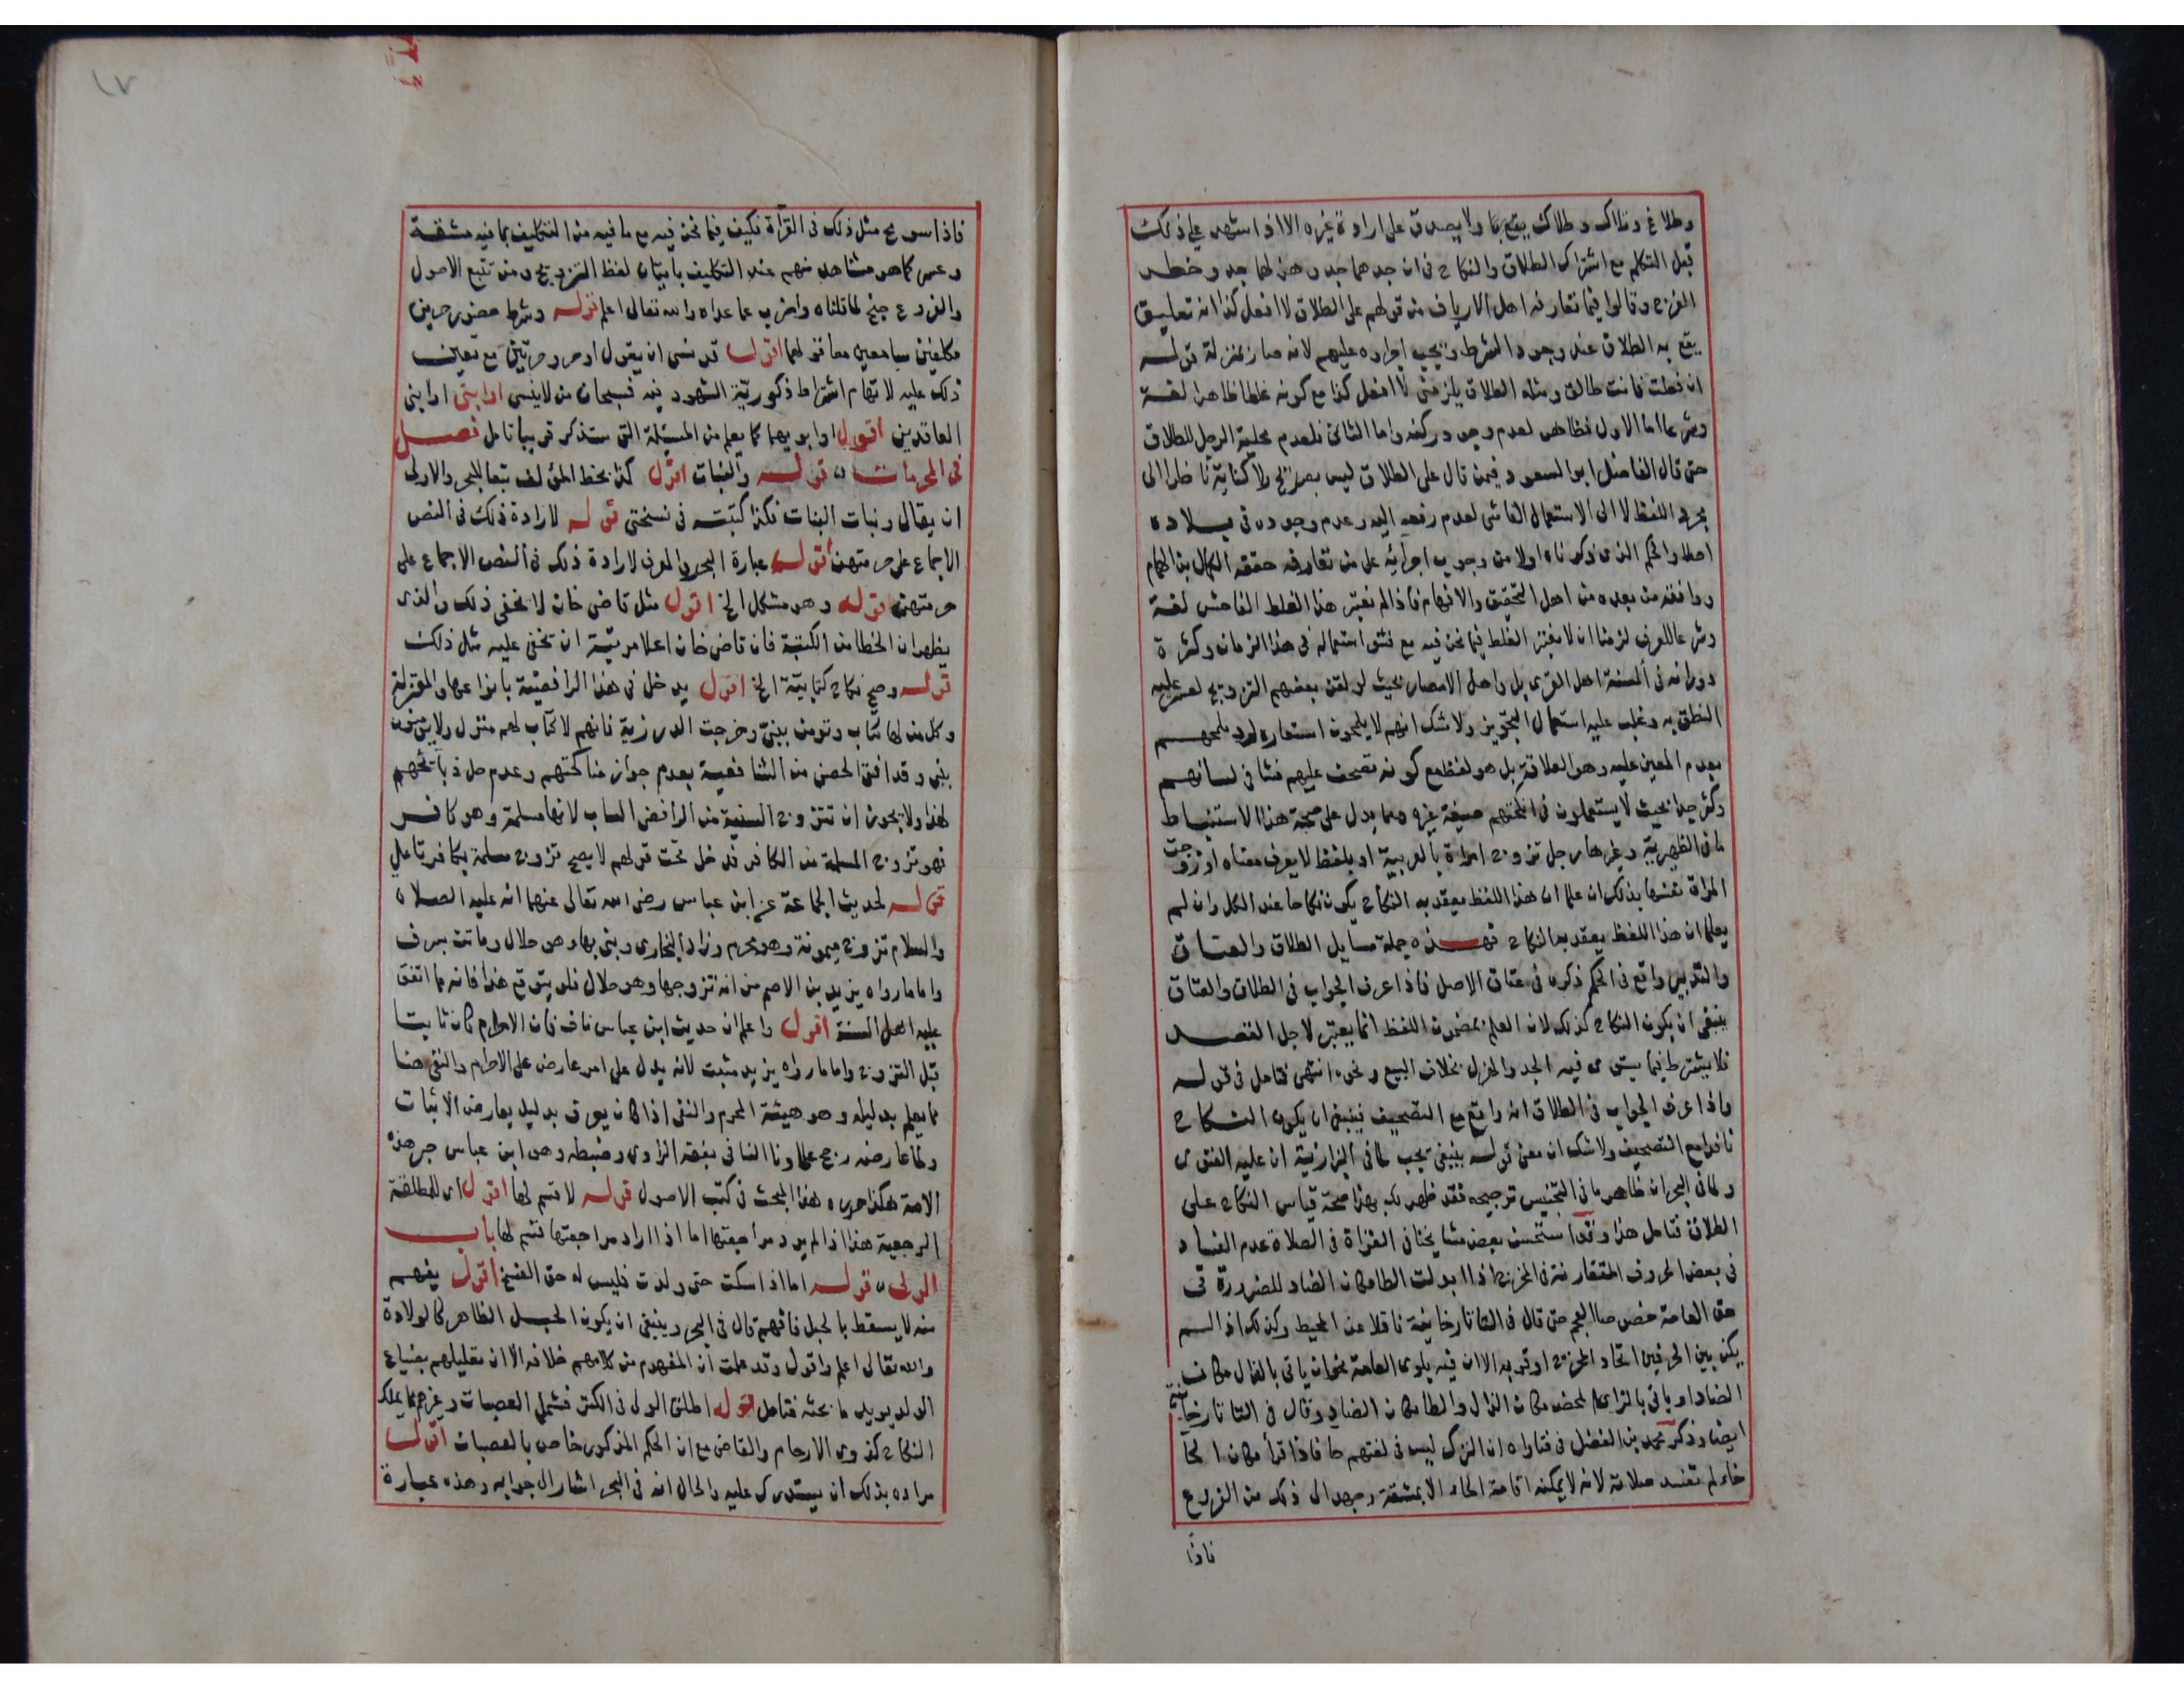 وطلاغ وتلاك وطلاك يقع بها ولا يصدق على ارادة غيره الا اذا اشهد على ذلك
قبل التكلم مع اشتراك الطلاق والنكاح في ان جدهما جد وهزلهما جد وخطر
الفرج وقالوا فيما تعارفه اهل الارياف من قولهم على الطلاق لا افعل كذا انه تعليق
يقع به الطلاق عند وجود الشرط ويجب اجراؤه عليهم لانه صار بمنزلة قوله
ان فعلت فانت طالق ومثله الطلاق يلزمني لا افعل كذا مع كونه غلطا ظاهرا لغة
وشرعا اما الاول فظاهر لعدم وجود ركنه واما الثاني فلعدم محلية الرجل للطلاق
حتى قال الفاضل ابو السعود فيمن قال على الطلاق ليس بصريح ولا كناية ناظرا الى
مجرد اللفظ لا الى الاستعمال الفاشي لعدم رفعه اليه وعدم وجوده في بلاده
اصلا والحكم الذي ذكرناه اولا من وجوب اجرائه على من تعارفه حققه الكمال بن الهمام
ووافقه من بعده من اهل التحقيق والافهام فاذا لم نعتبر هذا الغلط الفاحش لغة
وشرعا للعرف لزمنا ان لا نعتبر الغلط فيما نحن فيه مع فشو استعماله في هذا الزمان وكثرة
دورانه في السنة اهل القرى بل واهل الامصار بحيث لو لقن بعضهم التزويج لعسر عليه
النطق به وغلب عليه استعمال التجويز ولا شك انهم لا يلمحون استعارة لرد ملمحهم
بعدم المعين عليه وهو العلاقة بل هو لفظ مع كونه تصحف عليهم فشا في لسانهم
وكثر جدا بحيث لا يستعملون في انكحتهم صيغة غيره ومما يدل على صحة هذا الاستنباط
ما في الظهيرية وغيرها رجل تزوج امراة بالعربية او بلفظ لا يعرف معناه او زوجت
المراة نفسها بذلك ان علما ان هذا اللفظ يعقد به النكاح يكون نكاحا عند الكل وان لم
يعلما ان هذا اللفظ يعقد به النكاح فهذه جملة مسايل الطلاق والعتاق
والتدبير واقع في الحكم ذكره في عتاق الاصل فاذا عرف الجواب في الطلاق والعتاق
ينبغي ان يكون النكاح كذلك لان العلم بمضمون اللفظ انما يعتبر لاجل القصد
فلا يشترط فيما يستوي فيه الجد والهزل بخلاف البيع ونحوه انتهى فتامل في قوله
واذا عرف الجواب في الطلاق انه واقع مع التصحيف فينبغي ان يكون النكاح
نافذا مع التصحيف ولا شك ان معنى قوله ينبغي يجب لما في البزازية ان عليه الفتوى
ولما في البحر ان ظاهر ما في التجنيس ترجيحه فقد ظهر لك بهذا صحة قياس النكاح على
الطلاق فتامل هذا وقد استحسن بعض مشايخنا في القراة في الصلاة عدم الفساد
في بعض الحروف المتقاربة في المخرج اذا ابدلت الظا مكان الضاد للضرورة في
حق العامة خصوصا العجم حتى قال في التاتارخانية ناقلا عن المحيط وكذلك اذا لم
يكن بين الحرفين اتحاد المخرج او قربه الا ان فيه بلوى العامة نحو ان ياتي بالذال مكان
الضاد او ياتي بالزاي المحض مكان الذال والظا مكان الضاد وقال في التاتارخانية
ايضا وذكر محمد بن الفضل في فتاواه ان الترك ليس في لغتهم حا فاذا قرأ مكان الحا
خاء لم تفسد صلاته لانه لا يمكنه اقامة الحاء الا بمشقة وجهد الى ذلك من الفروع
فاذا
١٧
فاذا سومح مثل ذلك في القرأة فكيف فيما نحن فيه مع ما فيه من التكليف بما فيه مشقة
وعسر كما هو مشاهد منهم عند التكليف باتيان لفظ التزويج ومن تتبع الاصول
والفروع جنح لما قلناه واضرب عما عداه والله تعالى اعلم قوله وشرط حضور حرين
مكلفين سامعين معا قولهما اقول قد نسي ان يقول او حر وحرتين مع تعين
ذلك عليه لايهام اشتراط ذكورية الشهود فيه فسبحان من لا ينسى او ابني او ابني
العاقدين اقول او ابويهما كما يعلم من المسئلة التي ستذكر قريبا تامل فصل
في المحرمات قوله والبنات اقول كذا بخط المؤلف تبعا للبحر والاولى
ان يقال وبنات البنات هكذا كتبته في نسختي قوله لارادة ذلك في النص
الاجماع على حرمتهن اقول عبارة البحر والمعرف لارادة ذلك في النص الاجماع على
حرمتهن قوله وهو مشكل الخ اقول مثل قاضي خان لا يخفى ذلك والذي
يظهر ان الخطا من الكتبة فان قاضي خان اعلا مرتبة ان تخفى عليه مثل ذلك
قوله وصح نكاح كتابية الخ اقول يدخل في هذا الرافضية بانواعها والمعتزلة
وكل من لها كتاب وتومن بنبي وخرجت الدرزية فانهم لا كتاب لهم منزل ولا يومنون
بنبي وقد افتى الحصني من الشافعية بعدم جواز مناكحتهم وعدم حل ذبايحهم
هذا ولا يجوز ان تتزوج السنية من الرافضي الساب لانها مسلمة وهو كافر
فهو تزوج المسلمة من الكافر فدخل تحت قولهم لا يصح تزوج مسلمة بكافر تامل
قوله لحديث الجماعة عن ابن عباس رضي الله تعالى عنهما انه عليه الصلاة
والسلام تزوج ميمونة وهو محرم وزاد البخاري وبنى بها وهو حلال وماتت بسرف
واما ما رواه يزيد بن الاصم من انه تزوجها وهو حلال فلم يقو قوة هذا فانه مما اتفق
عليه اهل السنة اقول واعلم ان حديث ابن عباس ناف فان الاحرام كان ثابتا
قبل التزوج واما ما رواه يزيد مثبت لانه يدل على امر عارض على الاحرام والنفي هنا
مما يعلم بدليله وهو هيئة المحرم والنفي اذا كان يعرف بدليله يعارض الاثبات
ولما عارضه رجح علماونا النافي بفقه الراوي وضبطه وهو ابن عباس حبر هذه
الامة هكذا حرره هذا البحث في كتب الاصول قوله لا قسم لها اقول اي للمطلقة
الرجعية هذا اذا لم يرد مراجعتها اما اذا اراد مراجعتها قسم لها باب
الولي قوله اما اذا سكت حتى ولدت فليس له حق الفسخ اقول يفهم
منه لا يسقط بالحبل فافهم قال في البحر وينبغي ان يكون الحبل الظاهر كالولادة
والله تعالى اعلم واقول وقد علمت ان المفهوم من كلامهم خلافه الا ان تعليلهم بضياع
الولد يويد ما بحثه فتامل قوله اطلق الولي في الكنز فشمل العصبات وغيرهم مما يملك
النكاح كذوي الارحام والقاضي مع ان الحكم المذكور خاص بالعصبات اقول
مراده بذلك ان يستدرك عليه والحال انه في البحر اشار الى جوابه وهذه عبارة